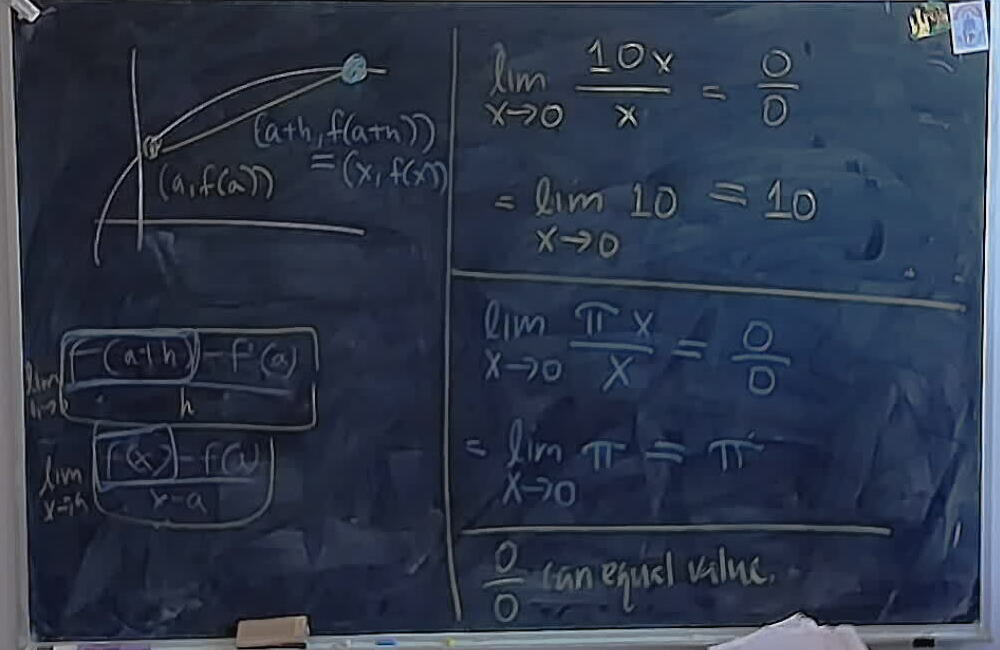 (a+h, f(a+h))
= (x, f(x))
(a, f(a))
lim h→0 f(a+h) - f(a) / h
lim x→a f(x) - f(a) / x-a
lim x→0 10x / x = 0/0
= lim x→0 10 = 10
lim x→0 πx / x = 0/0
= lim x→0 π = π
0/0 can equal value.